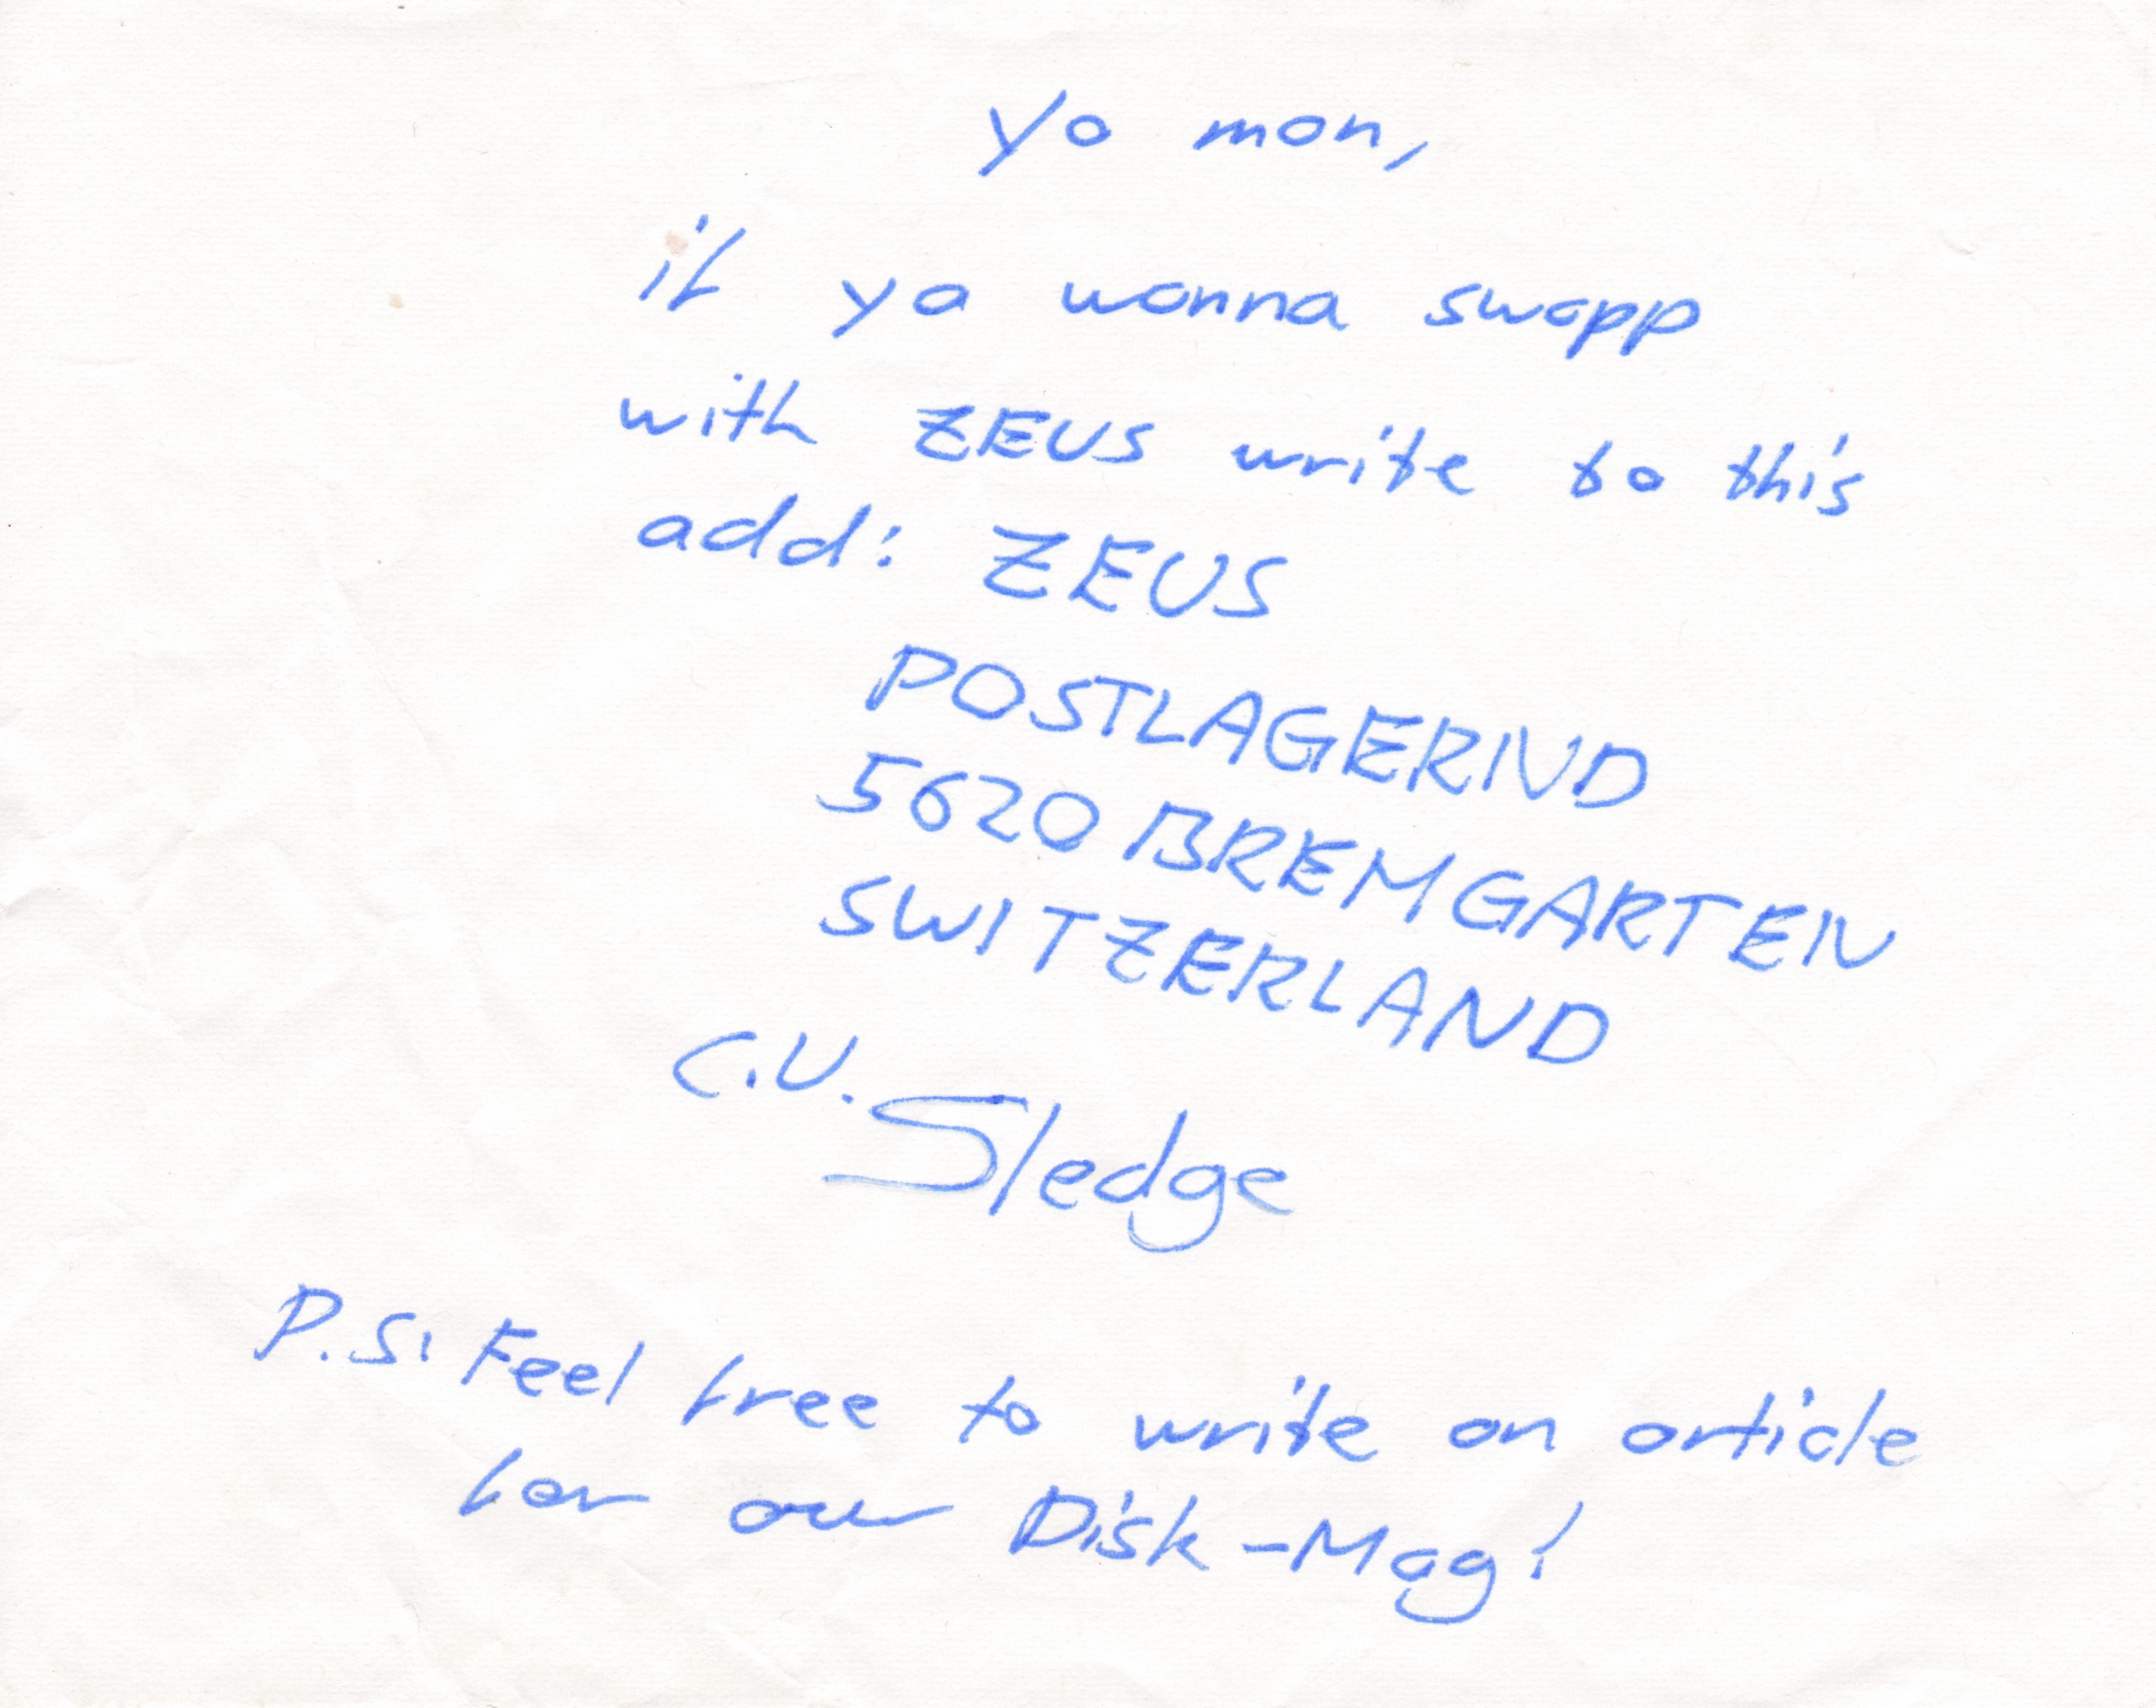 Yo man,
if ya wanna swapp
with ZEUS write to this
add: ZEUS
POSTLAGERND
5620 BREMGARTEN
SWITZERLAND
C.U. Sledge
P.S: Feel free to write an article
for our Disk-Mag!